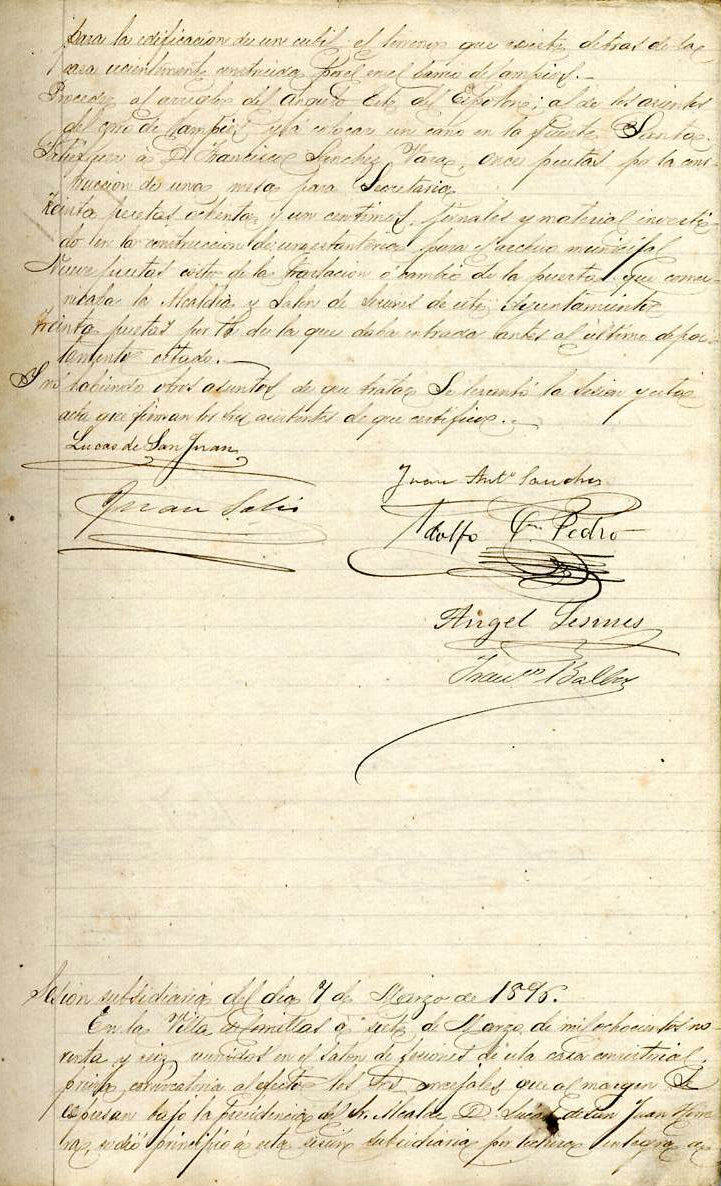 para la edificacion de un cubil el terreno que existe detras de la
casa recientemente construida por el en el barrio de
Proceder al arreglo del Este del; al de los asientos
del y a colocar un caño en la fuente Santa.
Satisfacer a D. Francisco Sanchez Vara, once pesetas por la cons-
truccion de una mesa para Secretaria
treinta pesetas ochenta y un centimos, jornales y material inverti-
do en la construccion de una estanteria para el archivo municipal
Nueve pesetas coste de la traslacion o cambio de la puerta que comu-
nicaba la Alcaldia y Salon de sesiones de este Ayuntamiento
treinta pesetas por la de la que daba entrada antes al ultimo depar-
tamento citado.
Y no habiendo otros asuntos de que tratar se levantó la sesion y esta
acta que firman los Sres asistentes de que certifico.
Lucas de San Juan
Juan Antº Sanchez
Juan
Adolfo Pedro
Angel
Franco
Sesion subsidiaria del dia 7 de Marzo de 1896.
En la Villa de a siete de Marzo de mil ochocientos no-
venta y seis reunidos en el salon de sesiones de esta casa consistorial
previa convocatoria al efecto los Sres concejales que al margen se
espresan bajo la presidencia del Sr. Alcalde D. Lucas de San Juan
se dio principio a esta sesion subsidiaria por lectura integra de